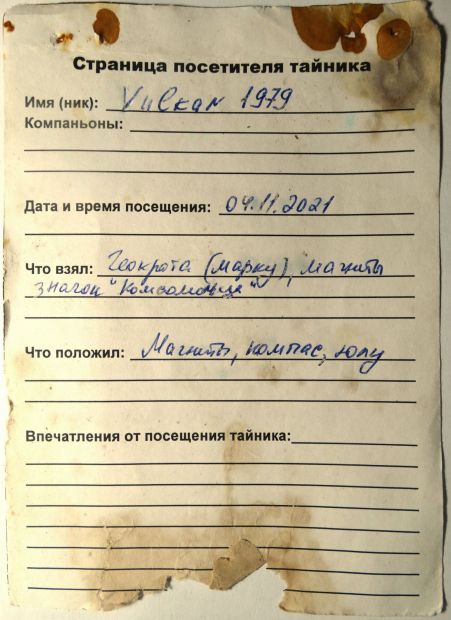 Страница посетителя тайника
Имя (ник): Vulkan 1979
Компаньоны:
Дата и время посещения: 04.11.2021
Что взял: Геокрота (марку), магниты
значок "Комсомолец"
Что положил: Магниты, компас, юлу
Впечатления от посещения тайника: